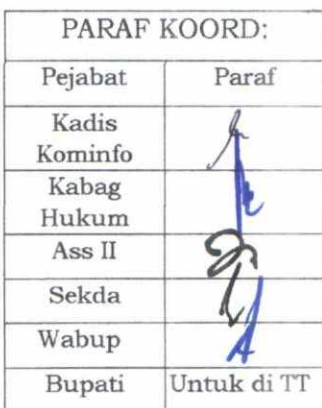 PARAF KOORD:
Pejabat Paraf
Kadis
Kominfo
Kabag
Hukum
Ass II
Sekda
Wabup
Bupati Untuk di TT